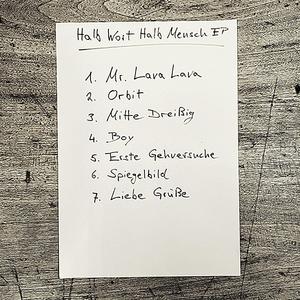 Halb Wort Halb Mensch EP
1. Mr. Lava Lava
2. Orbit
3. Mitte Dreißig
4. Boy
5. Erste Gehversuche
6. Spiegelbild
7. Liebe Grüße